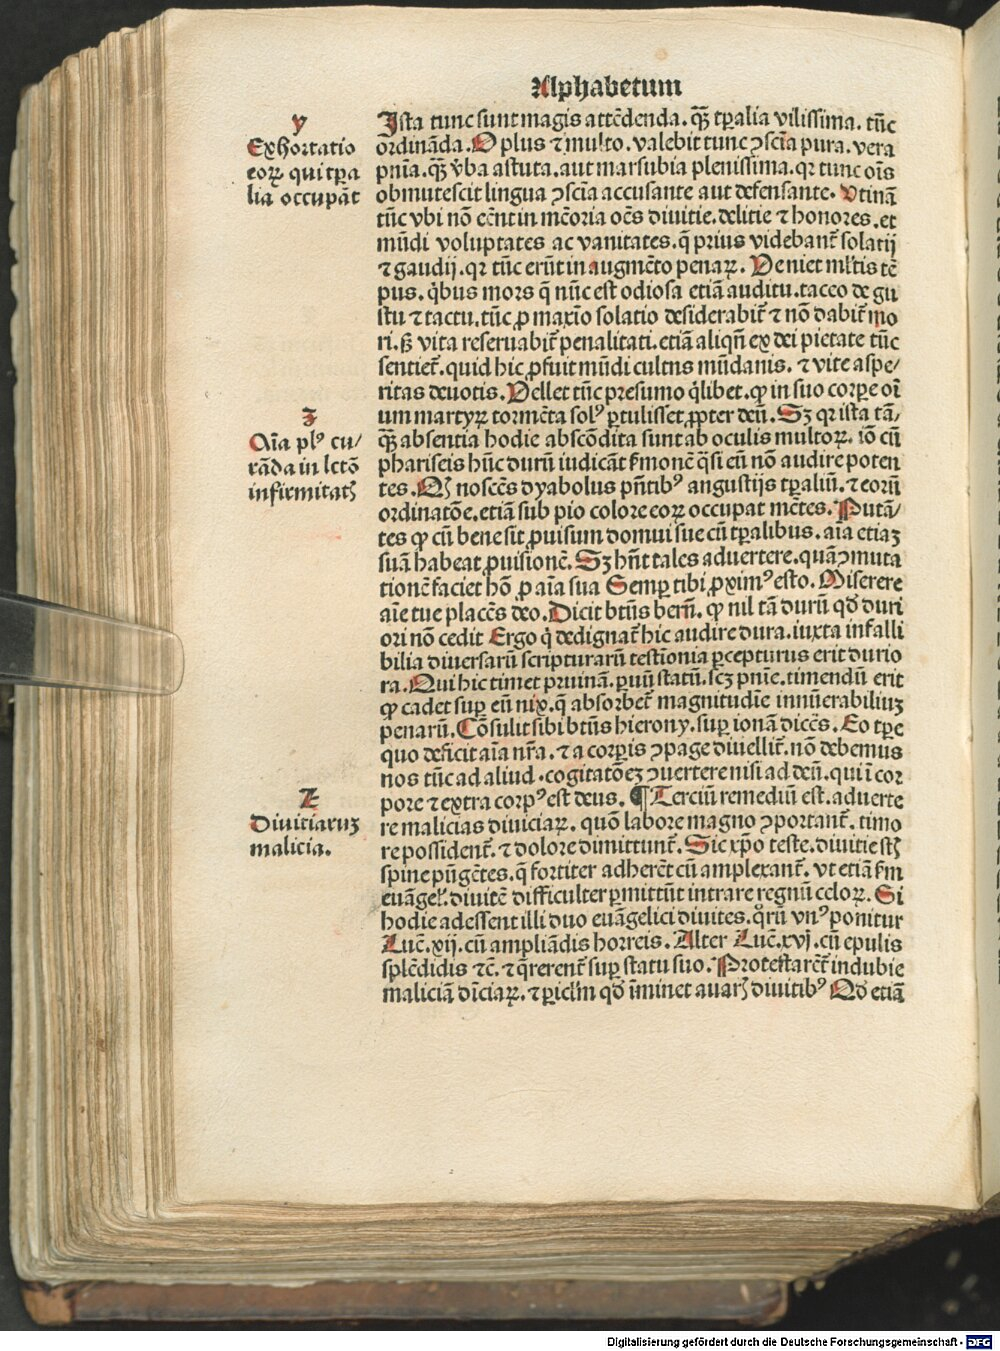 Alphabetum
y
Exhortatio
eoꝝ qui tꝑa
lia occupāt
Ista tunc sunt magis attēdenda. qꝫ̄ tꝑalia vilissima. tūc
ordināda. O plus ⁊ multo. valebit tunc ꝯscīa pura. vera
pnīa. qꝫ̄ v̄ba astuta. aut marsubia plenissima. qꝛ tunc oīs
obmutescit lingua ꝯscīa accusante aut defensante. Vtinā
tūc vbi nō eēnt in mēoria oēs diuitie. delitie ⁊ honores. et
mūdi voluptates ac vanitates. q̄ prius videbant̄ solatij
⁊ gaudij. qꝛ tūc erūt in augmēto penaꝝ. Veniet ml̄tis tē
pus. q̇bus mors q̄ nūc est odiosa etiā auditu. taceo de gu
stu ⁊ tactu. tūc ꝓ maxīo solatio desiderabit̄ ⁊ nō dabit̄ mo
ri. ß vita reseruabit̄ penalitati. etiā aliqn̄ ex dei pietate tūc
sentiet̄. quid hic ꝓfuit mūdi cultus mūdanis. ⁊ vite aspe/
ritas deuotis. Vellet tūc presumo q̇libet. ꝙ in suo corꝑe oī
um martyꝝ tormēta solꝰ ꝑtulisset ꝓpter deū. Sꝫ qꝛ ista tā/
qꝫ̄ absentia hodie abscōdita sunt ab oculis multoꝝ. iō cū
phariseis hūc durū iudicāt ẜmonē q̄si eū nō audire poten
tes. Qḋ noscēs dyabolus pn̄tibꝰ angustijs tꝑaliū. ⁊ eorū
ordinatōe. etiā sub pio colore eoꝝ occupat mētes. Putā/
tes ꝙ cū bene sit ꝓuisum domui sue cū tꝑalibus. aīa etiaꝫ
suā habeat ꝓuisionē. Sꝫ hn̄t tales aduertere. quā ꝯmuta
tionē faciet hō ꝓ aīa sua Semꝑ tibi ꝓximꝰ esto. Miserere
aīe tue placēs deo. Dicit btūs bern̄. ꝙ nil tā durū qḋ duri
ori nō cedit Ergo q̇ dedignat̄ hic audire dura. iuxta infalli
bilia diuersarū scripturarū testīonia ꝑcepturus erit durio
ra. Qui hic timet pruinā. ꝑuū statū. scꝫ pnīe. timendū erit
ꝙ cadet suꝑ eū nix. q̄ absorbet̄ magnitudīe innūerabiliuꝫ
penarū. Cōsulit sibi btūs hierony. suꝑ ionā dicēs. Eo tꝑe
quo deficit aīa nr̄a. ⁊ a corꝑis ꝯpage diuellit̄. nō debemus
nos tūc ad aliud cogitatōeꝫ ꝯuertere nisi ad deū. qui ī cor
pore ⁊ extra corpꝰ est deus. ¶ Terciū remediū est. aduerte
re malicias diuiciaꝝ. quō labore magno ꝯportant̄. timo
re possident̄. ⁊ dolore dimittunt̄. Sic xp̄o teste. diuitie st̄
spine pūgētes. q̄ fortiter adherēt cū amplexant̄. vt etiā ẜm
euāgel̄. diuitē difficulter ꝑmittūt intrare regnū celoꝝ. Si
hodie adessent illi duo euāgelici diuites. qͦrū vnꝰ ponitur
Luc̄. xij. cū ampliādis horreis. Alter Luc̄. xvj. cū epulis
splēdidis ⁊c̄. ⁊ q̄rerent̄ suꝑ statu suo. Protestarēt̄ indubie
maliciā dīciaꝝ. ⁊ ꝑicl̄m qḋ īminet auarꝭ diuitibꝰ Qḋ etiā
ꝫ
Aīa plꝰ cu/
rāda in lctō
infirmitatꝭ
⁊
Diuitiaruꝫ
malicia.
Digitalisierung gefördert durch die Deutsche Forschungsgemeinschaft - DFG